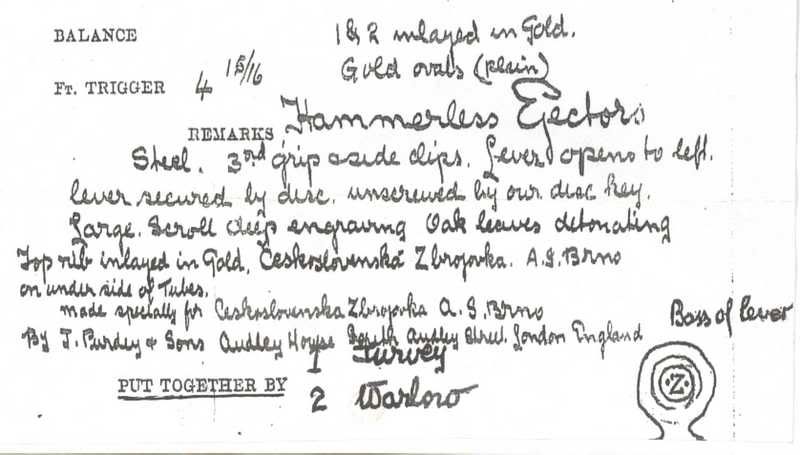 BALANCE 1 & 2 inlayed in Gold.
Gold ovals (plain)
FT. TRIGGER 4 15/16
REMARKS Hammerless Ejectors
Steel. 3rd grip & side clips. Lever opens to left.
lever secured by disc. unscrewed by our disc key.
Large. Scroll deep engraving Oak leaves detonating
Top rib inlayed in Gold, Československá Zbrojovka. A.S. Brno
on under side of Tubes.
made specially for Ceskoslovenska Zbrojovka A.S. Brno
By J. Purdey & Sons Audley House South Audley Street. London England
Boss of lever
PUT TOGETHER BY 1 Turvey
2 Warlow
·Z·